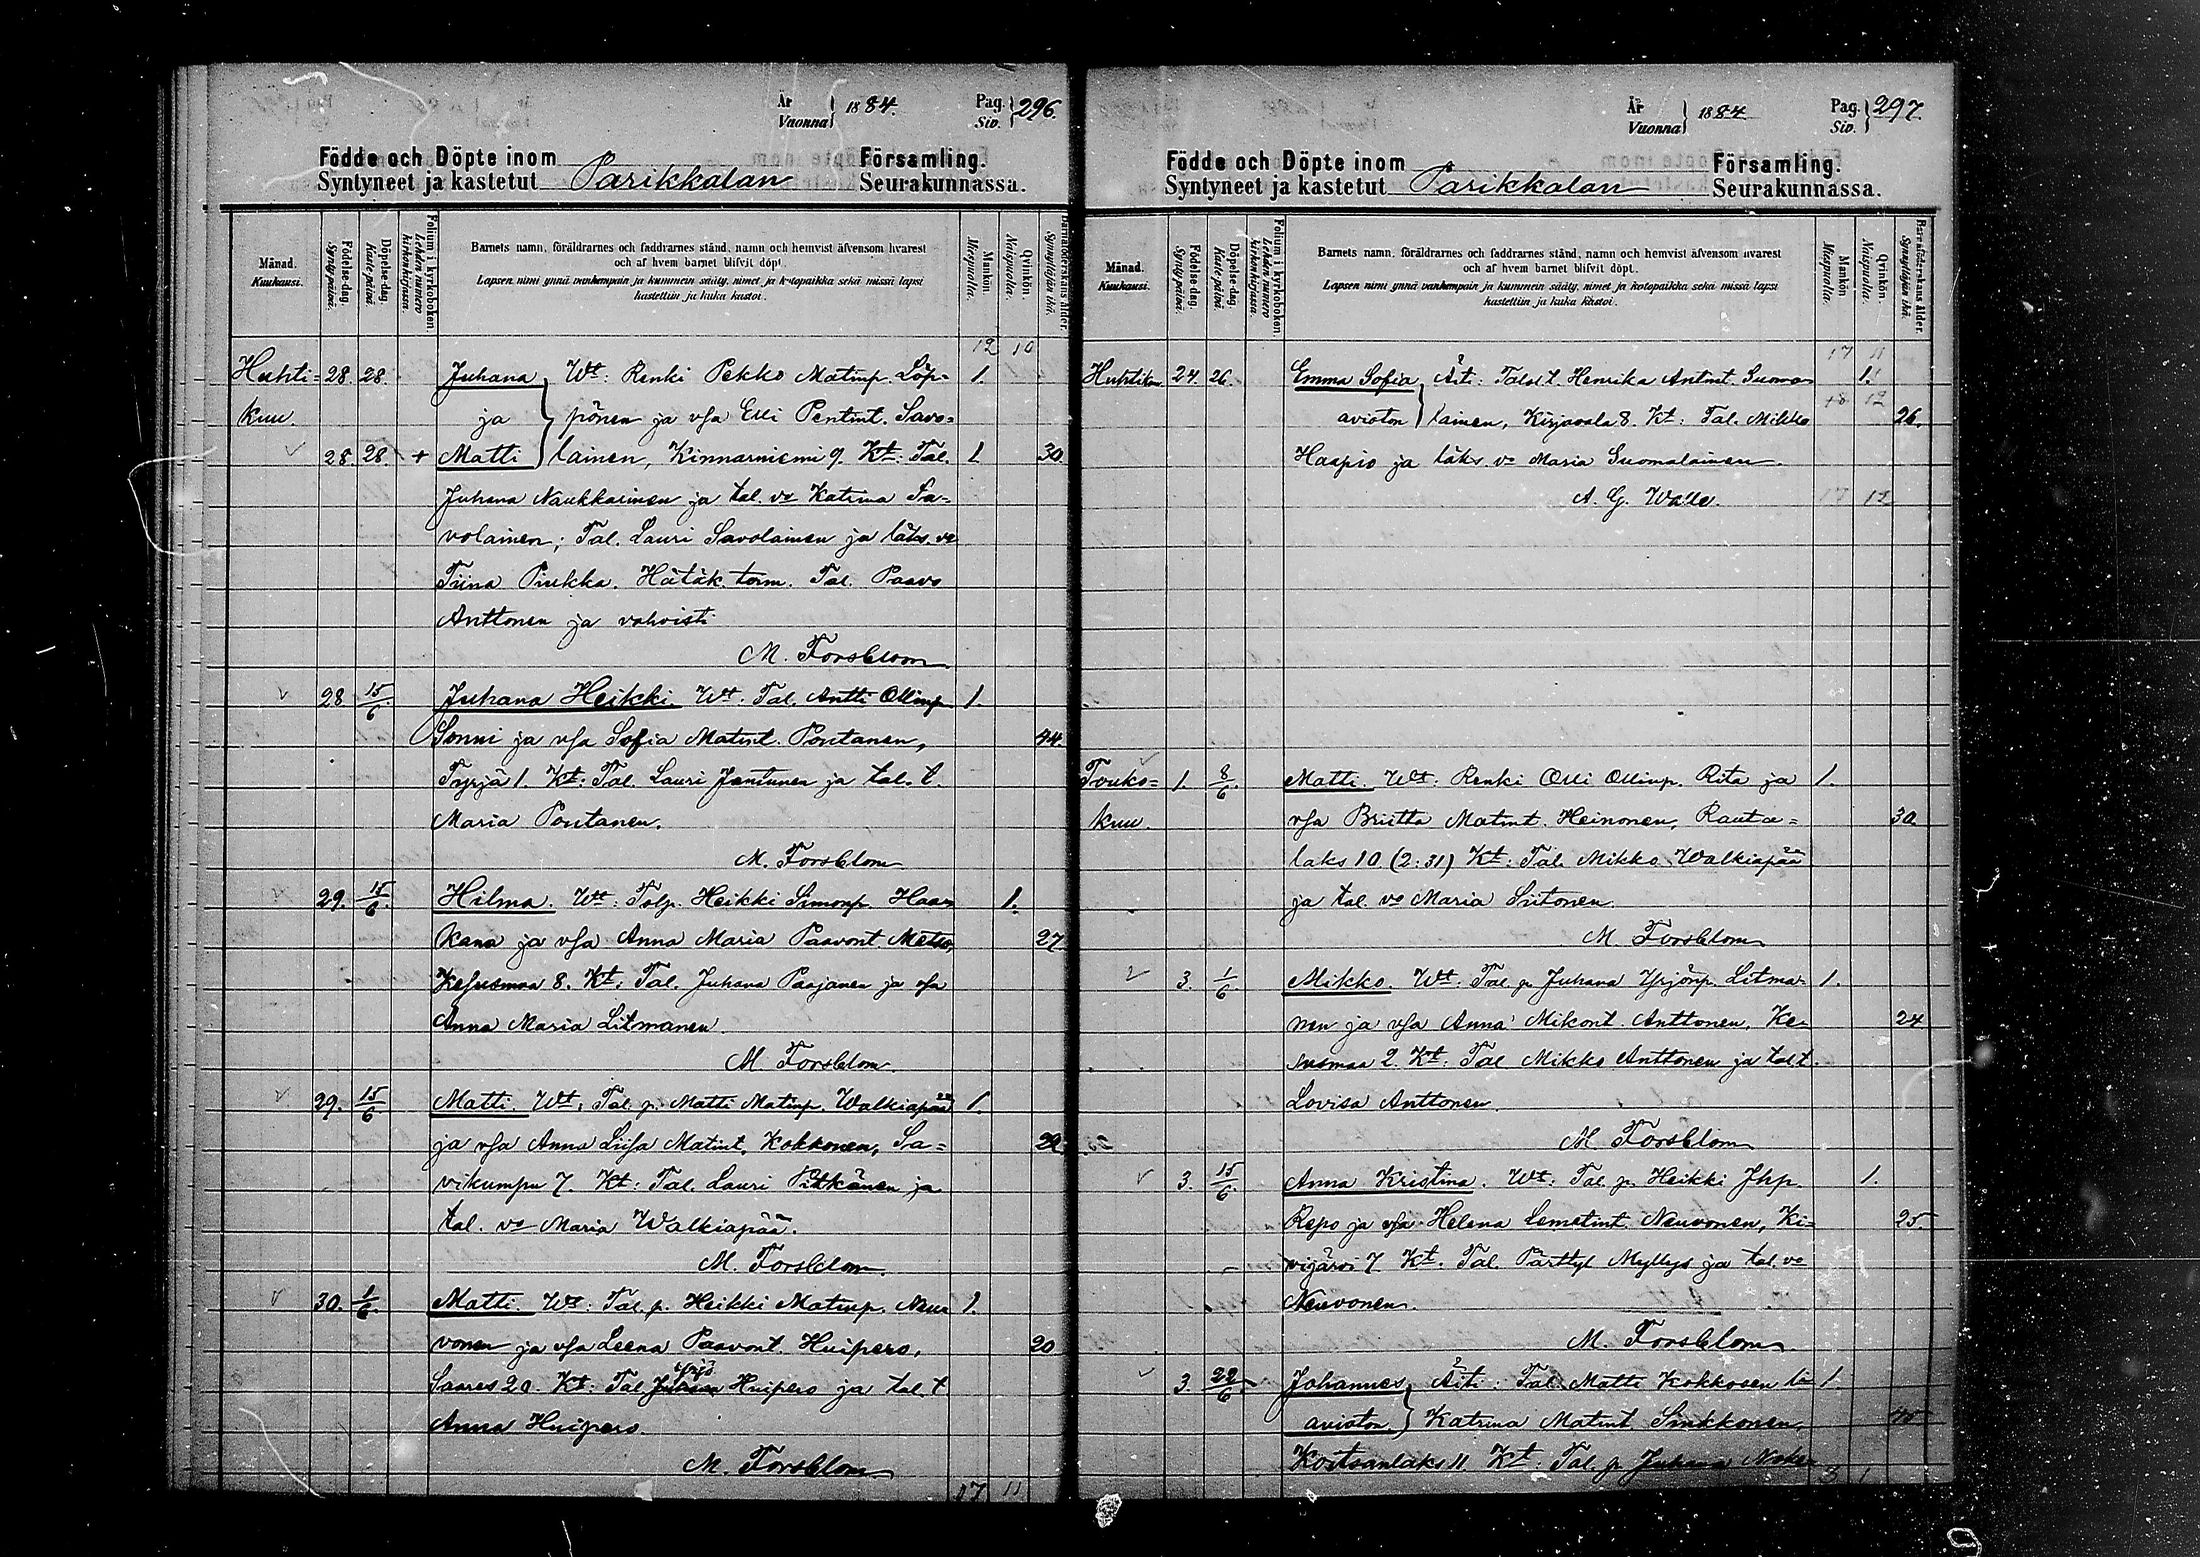 År
Vuonna } 1884.
Pag.
Siv. } 296.
Födde och Döpte inom Församling.
Syntyneet ja kastetut Parikkalan Seurakunnassa.
Månad.
Kuukausi.
Födelse-dag.
Syntypäivä.
Döpelse-dag.
Kastepäivä.
Folium i kyrkoboken.
Lehden numero kirkonkirjassa.
Barnets namn, föräldrarnes och faddrarnes stånd, namn och hemvist äfvensom hvarest
och af hvem barnet blifvit döpt.
Lapsen nimi ynnä vanhempain ja kummein sääty, nimet ja kotopaikka sekä missä lapsi
kastettiin ja kuka kastoi.
Mankön.
Miespuolia.
Qvinkön.
Naispuolia.
Barnaföderskans ålder.
Synnyttäjän ikä.
12 10
Huhti= 28. 28. Juhana } Wt: Renki Pekko Matinp. Löp= 1.
kuu. ja } pönen ja vsa Elli Pentint. Savo=
28. 28. + Matti } lainen, Kinnarniemi 9. Kt: Tal. 1. 30.
Juhana Naukkarinen ja tal. vo Katrina Sa=
volainen; Tal. Lauri Savolainen ja läks. vo
Tiina Piukka. Hätäk. tom. Tal. Paavo
Anttonen ja vahvisti
M. Forsblom
28 15/6. Juhana Heikki. Wt. Tal. Antti Ollinp. 1.
Sonni ja vsa Sofia Matint. Pontanen, 44.
Tyrjä 1. Kt: Tal. Lauri Jantunen ja tal. t.
Maria Pontanen.
M. Forsblom
29. 15/6. Hilma. Wt: Talp. Heikki Simonp. Haa= 1.
kana ja vsa Anna Maria Paavont. Metso, 27
Kesusmaa 8. Kt: Tal. Juhana Paajanen ja vsa
Anna Maria Litmanen.
M. Forsblom.
29. 15/6 Matti. Wt: Tal. p. Matti Matinp. Walkiapää 1.
ja vsa Anna Liisa Matint. Kokkonen, Sa= 22
vikumpu 7. Kt: Tal. Lauri Pitkänen ja
tal. vo Maria Walkiapää.
M. Forsblom.
30. 1/6. Matti. Wt: Tal. p. Heikki Matinp. Neu= 1.
vonen ja vsa Leena Paavont. Huipero, 20
Yrjö
Saares 20. Kt: Tal. Juhana Huipero ja tal. t
Anna Huipero.
M. Forsblom
17 11
År
Vuonna } 1884.
Pag.
Siv. } 297.
Födde och Döpte inom Församling.
Syntyneet ja kastetut Parikkalan Seurakunnassa.
Månad.
Kuukausi.
Födelse-dag.
Syntypäivä.
Döpelse-dag.
Kastepäivä.
Folium i kyrkoboken.
Lehden numero kirkonkirjassa.
Barnets namn, föräldrarnes och faddrarnes stånd, namn och hemvist äfvensom hvarest
och af hvem barnet blifvit döpt.
Lapsen nimi ynnä vanhempain ja kummein sääty, nimet ja kotopaikka sekä missä lapsi
kastettiin ja kuka kastoi.
Mankön.
Miespuolia.
Qvinkön.
Naispuolia.
Barnaföderskans ålder.
Synnyttäjän ikä.
17 11
Huhtikuu 24. 26. Emma Sofia } Äiti: Tal. t. Henrika Antint. Suoma= 1.
18 12
avioton } lainen, Kirjavala 8. Kt: Tal. Mikko 26.
Haapio ja läks. vo Maria Suomalainen.
A. G. Walle. 17 12
Touko= 1. 8/6. Matti. Wt: Renki Olli Ollinp. Rita ja 1.
kuu. vsa Briitta Matint. Heinonen, Rauta= 30.
laks 10 (2:31) Kt: Tal. Mikko Walkiapää
ja tal. vo Maria Siitonen.
M. Forsblom
3. 1/6. Mikko. Wt: Tal. p. Juhana Yrjönp. Litma= 1.
nen ja vsa Anna Mikont. Anttonen, Ke= 24
susmaa 2. Kt: Tal. Mikko Anttonen ja tal. t.
Lovisa Anttonen.
M. Forsblom
3. 15/6. Anna Kristina. Wt: Tal. p. Heikki Jhp. 1.
Repo ja vsa Helena Lemetint. Neuvonen, Ki= 25.
vijärvi 7. Kt. Tal. Parttyl Myllys ja tal. vo
Neuvonen.
M. Forsblom
3. 22/6. Johannes } Äiti: Tal. Matti Kokkosen le= 1.
avioton. } Katrina Matint. Sinkkonen,
Koitsanlaks 11. Kt: Tal. p. Juhana
3 1